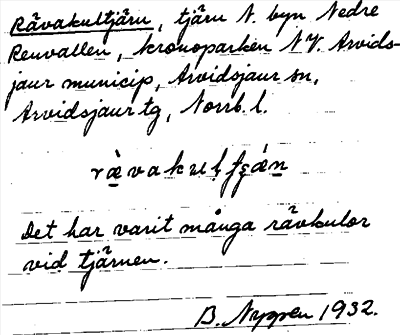 Rävakultjärn, tjärn N. byn Nedre
Renvallen, kronoparken NV. Arvids-
jaur municip, Arvidsjaur sn,
Arvidsjaur tg, Norrb. l.
Det har varit många rävkulor
vid tjärnen.
B. Nygren 1932.